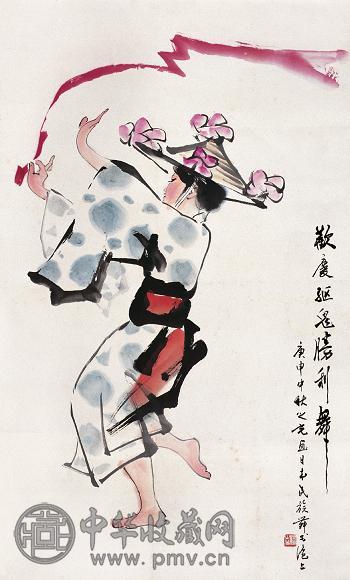 歡慶驅鬼勝利舞
庚申中秋之光画日本民族舞于滬上
中华收藏网
www.pmv.cn